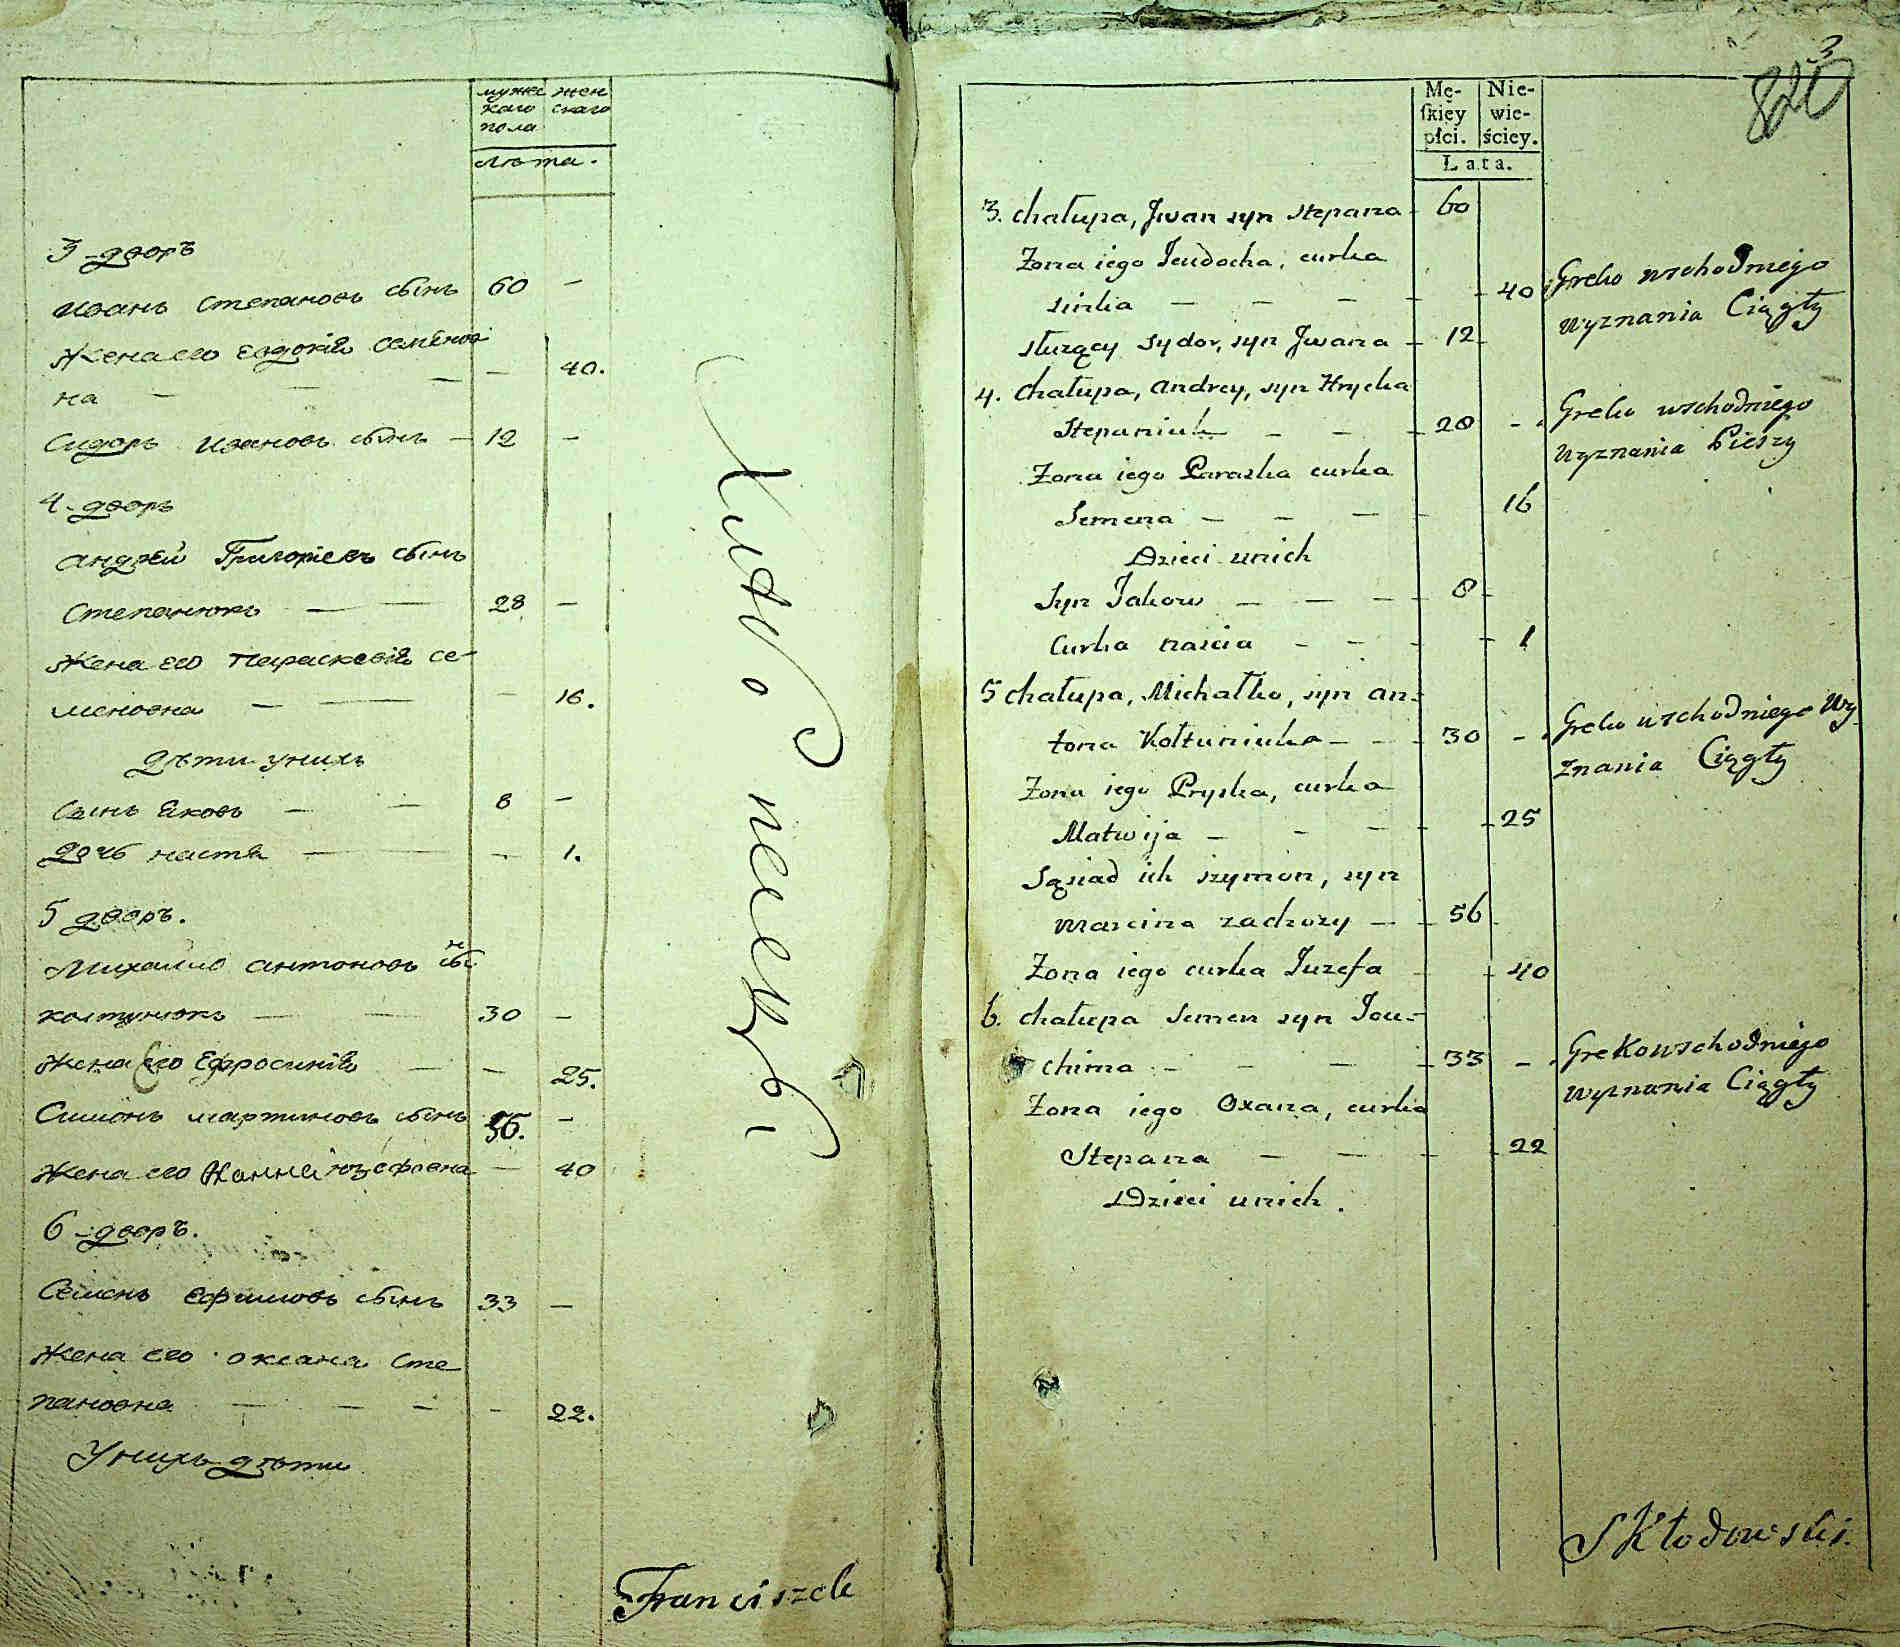 мужес
каго
пола
жен
скаго
лѣта.
3-дворъ
иванъ степановъ сынъ 60 —
жена его евдокия семено
на — — — — 40.
Сидоръ ивановъ сынъ — 12 —
4-дворъ
андрей Григориевъ сынъ
степанюкъ — — 28 —
жена его параскевия се-
меновна — — — 16.
дѣти унихъ
сынъ яковъ — — 8 —
дочь настя — — — 1.
5 дворъ.
Михайло антоновъ сынъ
колтунюкъ — — 30 —
жена его Ефросиния — — 25.
Симонъ мартиновъ сынъ 56. —
жена его Анна юзефовна — 40
6-дворъ.
Семенъ ефимовъ сынъ 33 —
жена его оксана сте
пановна — — — — 22.
Унихъ дѣти
Franciszek
3
820
Mę-
ſkiéy
płci.
Nie-
wie-
ściey.
Lata.
3. chałupa, Jwan syn Stepana 60
Żona iego Jeudocha, curka
— — — 40 Greko wschodniego
wyznania Ciągły
służący Sydor, syn Jwana - 12
4. Chałupa, Andrey, syn Hryćka
Stepaniuk — — 28 - Greko wschodniego
wyznania Pieszy
Żona iego Paraska curka
Semena — — — 16
Dzieci unich
Syn Jakow — — — 8
Curka nascia — — - 1
5 chałupa, Michałko, syn An-
tona Kołtuniuka — - 30 - Greko wschodniego Wy
znania Ciągły
Żona iego Pryska, curka
Matwija — — — 25
Sąsiad ich szymon, syn
Marcina — 56
Żona iego curka Juzefa 40
6. chałupa Semen syn Jou-
chima — — — 33 - Greko wschodniego
wyznania Ciągły
Żona iego Oxana, curka
Stepana — — 22
Dzieci unich.
Skłodowski.